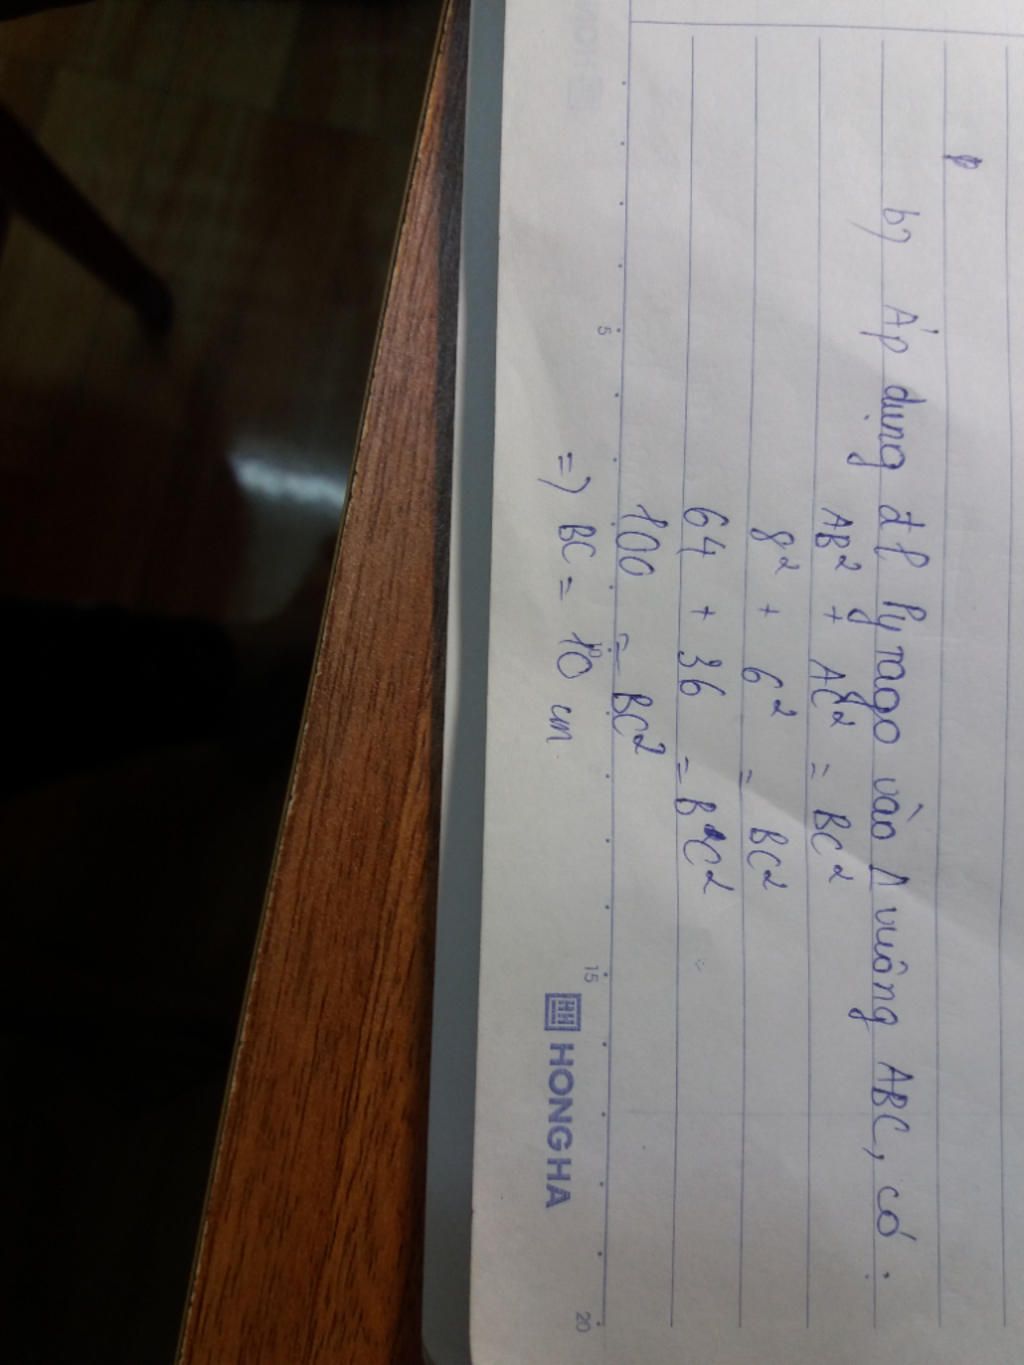 b) Áp dụng đl Pytago vào Δ vuông ABC, có.
AB² + AC² = BC²
8² + 6² = BC²
64 + 36 = B²C²
100 = BC²
=) BC = 10 cm
5
10
15
20
HONG HA